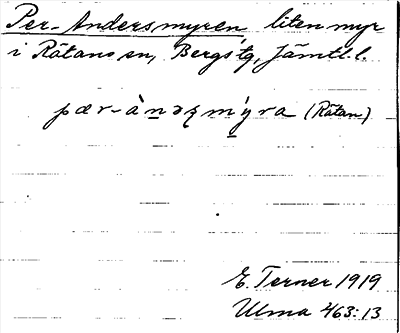 Per-Andersmyren liten myr
i Rätans sn, Bergs tg, Jämtl. l.
pær-àndȩʂmýra (Rätan)
E. Terner 1919
Ulma 463:13